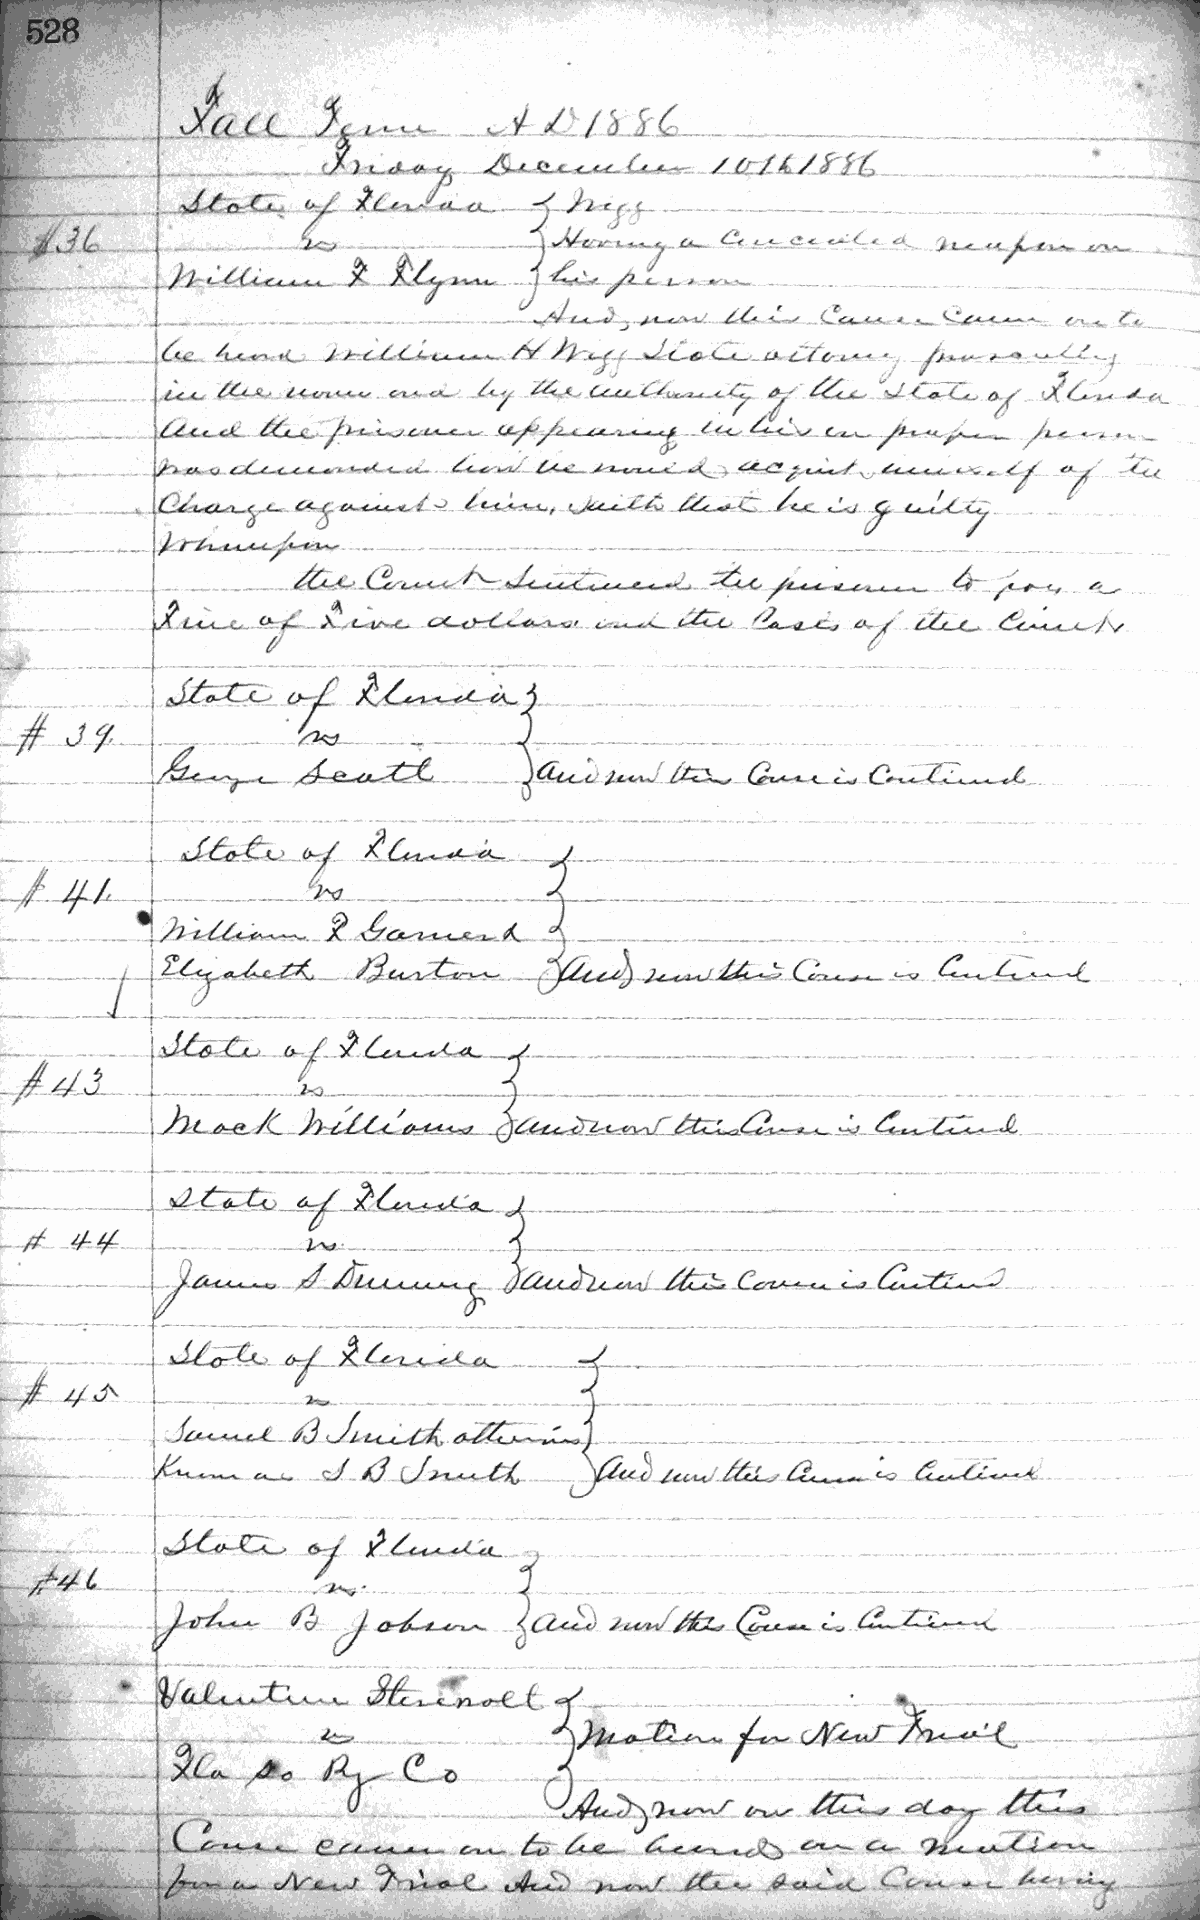 528
Fall Term A D 1886
Friday December 10th 1886
State of Florida } Wigg
#36 vs } Having a Concealed weapon on
William F Flynn } his person
And, now this Cause Came on to
be heard William H Wigg State attorney prosecuting
in the name and by the authority of the State of Florida
And the prisoner appearing in his on proper person
was demanded how he would acquit himself of the
Charge against him, saith that he is guilty
Whereupon
the Court Sentenced the prisoner to pay a
Fine of Five dollars and the Costs of the Court
State of Florida }
# 39. vs
George Scott } And now this Cause is Continued
State of Florida }
# 41. vs
William F
Elizabeth Burton } And now this Cause is Continued
State of Florida }
# 43 vs
Mack Williams } And now this Cause is Continued
State of Florida }
# 44 vs.
James S } And now this Cause is Continued
State of Florida }
# 45 vs
Samuel B Smith otherwise
Known as S B Smith } And now this Cause is Continued
State of Florida }
#46 vs.
John B Jobson } And now this Cause is Continued
Valentine }
vs } Motion for New Trial
Fla So Ry Co
And, now on this day this
Cause came on to be heard on a motion
for a New Trial And now the said Cause having